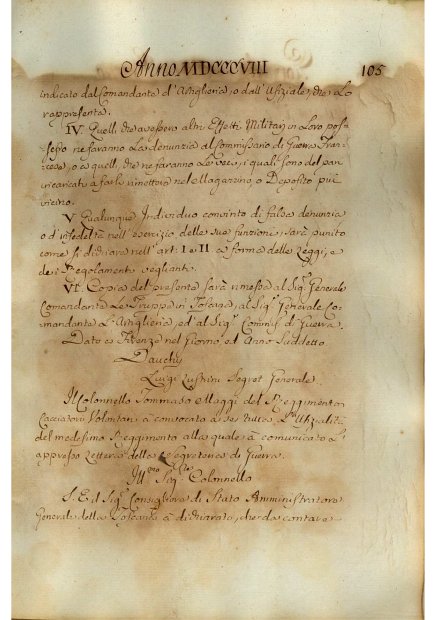 Anno MDCCCVIII 105
indicato dal Comandante d'Artiglieria, o dall'Ufiziale, che Lo
rappresenta.
IV. Quelli che avessero altri Effetti Militari in Loro pos-
sesso ne faranno La denunzia al Commissario di Guerra Fran-
cese, o a quelli che ne faranno Le veci, i quali sono del pari
incaricati a farli rimettere nel Magazzino, o Deposito più
vicino.
V. Qualunque Individuo convinto di falsa denunzia
o d'infedeltà nell'esercizio delle sue funzioni, sarà punito
come si dichiara nell'art: I e II a forma delle Leggi, e
dei Regolamenti veglianti.
VI. Copia del presente sarà rimessa al Sig.e Generale
Comandante Le Truppe in Toscana, al Sig.e Generale Co-
mandante L'Artiglieria, ed al Sig.e Commiss.o di Guerra.
Dato in Firenze nel Giorno, ed Anno Suddetto
Dauchy
Luigi Segret. Generale
Il Colonnello Tommaso Maggi del Reggimento
Cacciatori Volontari à convocato a se tutta L'Ufizialità
del medesimo Reggimento alla quale à comunicato L'
appresso Lettera della Segreteria di Guerra.
Ill.mo Sig.e Colonnello
S. E. il Sig.e Consigliere di Stato Amministratore
Generale della Toscana à dichiarato, che da contare